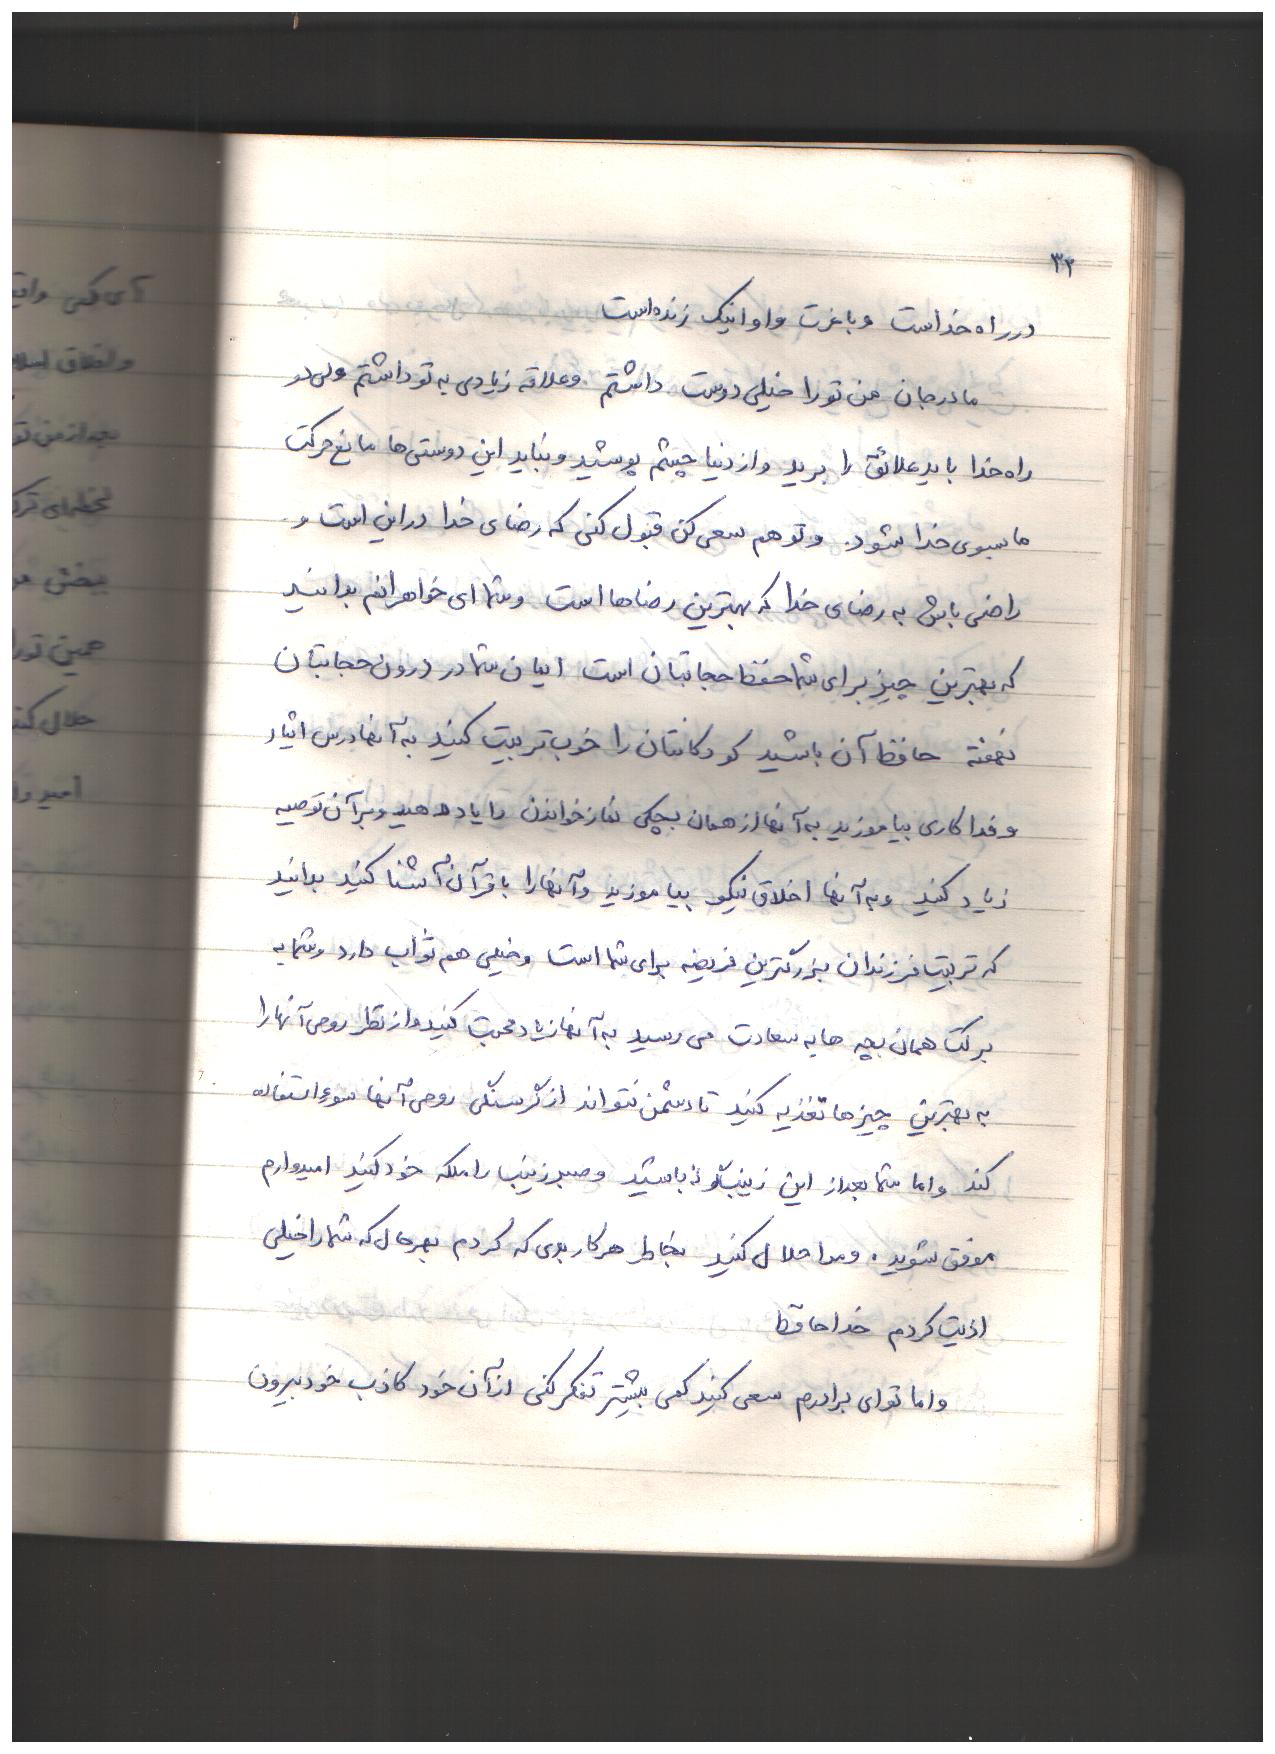 ۳۲
در راه خداست و با عزت و او اینک زنده است
مادرجان من تو را خیلی دوست داشتم و علاقه زیادی به تو داشتم ولی در
راه خدا باید علائق را برید و از دنیا چشم پوشید و نباید این دوستی‌ها مانع حرکت
ما بسوی خدا شود. و تو هم سعی کن قبول کنی که رضای خدا در این است و
راضی باش به رضای خدا که بهترین رضاها است و شما ای خواهرانم بدانید
که بهترین چیز برای شما حفظ حجابتان است ایمان شما در درون حجابتان
نهفته حافظ آن باشید کودکانتان را خوب تربیت کنید به آنها درس ایثار
و فداکاری بیاموزید به آنها از همان بچگی نماز خواندن را یاد دهید و بر آن توصیه
زیاد کنید و به آنها اخلاق نیکو بیاموزید و آنها را با قرآن آشنا کنید بدانید
که تربیت فرزندان بزرگترین فریضه برای شما است و خیلی هم ثواب دارد و شما به
برکت همان بچه ها به سعادت می رسید به آنها زیاد محبت کنید و از نظر روحی آنها را
به بهترین چیزها تغذیه کنید تا دشمن نتواند از گرسنگی روحی آنها سوء استفاده
کند و اما شما بعد از این زینب‌گونه باشید و صبر زینب را ملکه خود کنید امیدوارم
موفق شوید. و مرا حلال کنید بخاطر هر کار بدی که کردم بهر حال که شما را خیلی
اذیت کردم خداحافظ
و اما تو ای برادرم سعی کنید کمی بیشتر تفکر کنی از آن خود کاذب خود بیرون
آی کمی
بعد از من تو
حلال کند